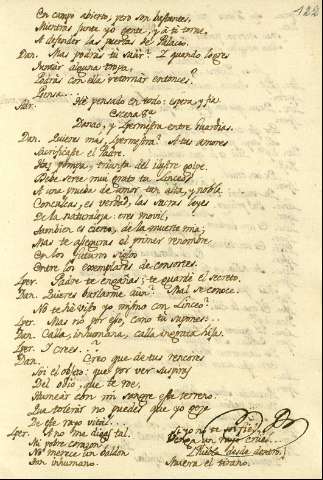 122
En campo abierto, pero son bastantes,
Mientras junto yo gente, y á ti torne,
A defender las puertas de Palacio.
Dan. Mas podrás tu salir? I quando logres
Juntar alguna tropa,
Podrás con ella retornar entonces?
Piensa...
He pensado en todo: espera, y fia
Escena 8ª
Danao, y Ipermestra entre Guardias.
Dan. Quieres mas, Ipermestra? A tus amores
sacrificaste el Padre.
triunfa del golpe.
Debe serte mui grato tu Linceo?
A una prueba de amor tan alta, y noble
Conculcas, es verdad, las sacras leyes
De la naturaleza: eres
tambien es cierto, de la muerte mia;
Mas te aseguras el primer renombre
En los futuros siglos
Entre los exemplares de consortes.
Iper. Padre te engañas; te guardé el secreto.
Dan. Quieres burlarme aun? Mal se conoce.
No te hé visto yo mismo con Linceo?
Iper. Mas no por eso, como tu supones...
Dan. Calla, inhumana, calla ingrata hija.
Iper. I crees...?
Dan. Creo que de tus rencores
Soi el objeto: que por ver suspiras
Del odio, que te roe,
Humear con mi sangre este terreno.
Que tolerár no puedes que yo goze
De este rayo vital...
Iper. A no me digas tal.
Mi pobre corazon
No merece un baldon
tan inhumano.
Si yo no te
Venga un rayo cruel
Muera el tirano.